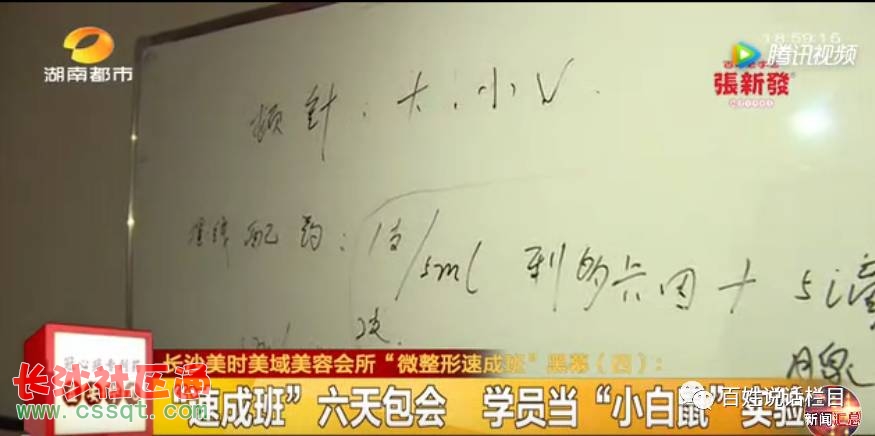 湖南都市
18:59:16
腾讯视频
張新發
针:大、小V
配药:1支/5ml 利多卡因 + 5滴
腺
长沙美时美域美容会所“微整形速成班”黑幕(四):
“速成班”六天包会 学员当“小白鼠”实验
长沙社区通
www.cssqt.com
百姓说话栏目
新闻汇总